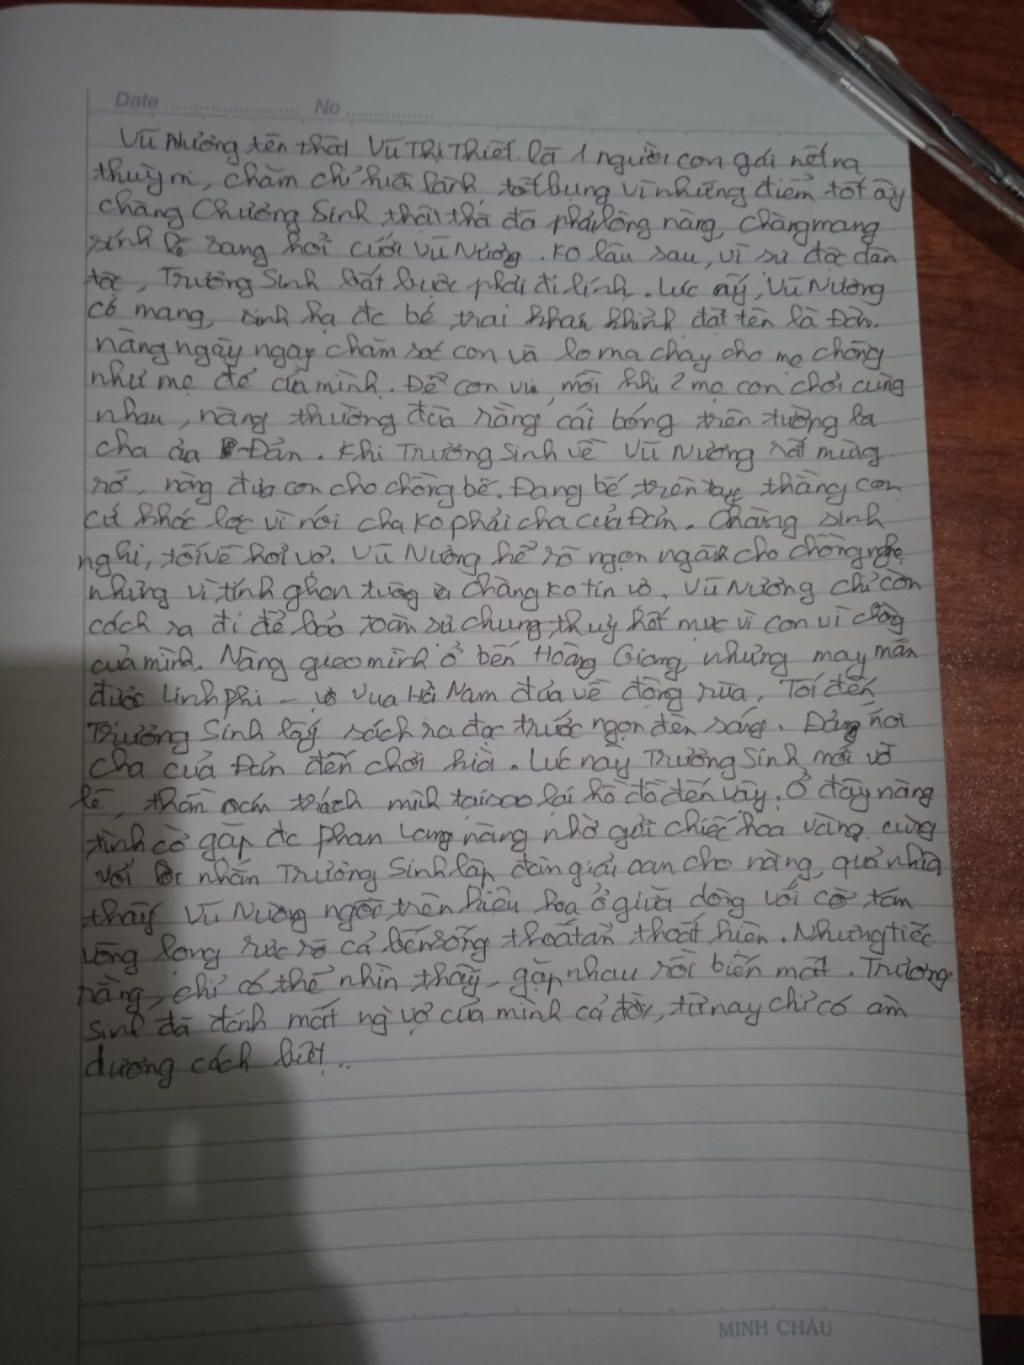 Date No
Vũ Nương tên thật Vũ Thị Thiết là 1 người con gái nết na
thuỳ mị, chăm chỉ hiền lành tốt bụng vì những điểm tốt ấy
chàng Chương Sinh thật thà đã phải lòng nàng, chàng mang
sính lễ sang hỏi cưới Vũ Nương. Ko lâu sau, vì sự độc dân
tộc, Trương Sinh bắt buộc phải đi lính. Lúc ấy, Vũ Nương
có mang, sinh hạ đc bé trai khỉnh đặt tên là Đản.
nàng ngày ngày chăm sóc con và lo ma chay cho mẹ chồng
như mẹ đẻ của mình. Để con vui, mỗi khi 2 mẹ con chơi cùng
nhau, nàng thường đùa rằng cái bóng trên tường là
cha của Đản. Khi Trương Sinh về Vũ Nương rất mừng
rỡ, nàng đưa con cho chồng bế. Đang bế trên tay thằng con
cứ khóc lọc vì nói cha ko phải cha của Đản. Chàng sinh
nghi, tới về hỏi vợ. Vũ Nương kể rõ ngọn ngành cho chồng nghe
nhưng vì tính ghen tuông chàng ko tin vợ. Vũ Nương chỉ còn
cách ra đi để bảo toàn sự chung thuỷ hết mực vì con vì chồng
của mình. Nàng gieo mình ở bến Hoàng Giang, nhưng may mắn
được Linh phi - vợ Vua Hải Nam đưa về động rùa. Tối đến
Trương Sinh lấy sách ra đọc trước ngọn đèn sáng. Đảng nói
cha của Đản đến chơi kìa. Lúc này Trương Sinh mới vỡ
lẽ, thán oán trách mình tại sao lại hồ đồ đến vậy. Ở đây nàng
tình cờ gặp đc Phan Lang nàng nhờ gửi chiếc hoa vàng cùng
với lời nhắn Trương Sinh lập đàn giải oan cho nàng, quả nhiên
thấy Vũ Nương ngồi trên kiệu hoa ở giữa dòng với cờ tán
võng lọng rực rỡ cả bến sông thoắt ẩn thoắt hiện. Nhưng tiếc
rằng, chỉ có thể nhìn thấy, gặp nhau rồi biến mất. Trương
Sinh đã đánh mất ng vợ của mình cả đời, từ nay chỉ có âm
dương cách biệt..
MINH CHÂU